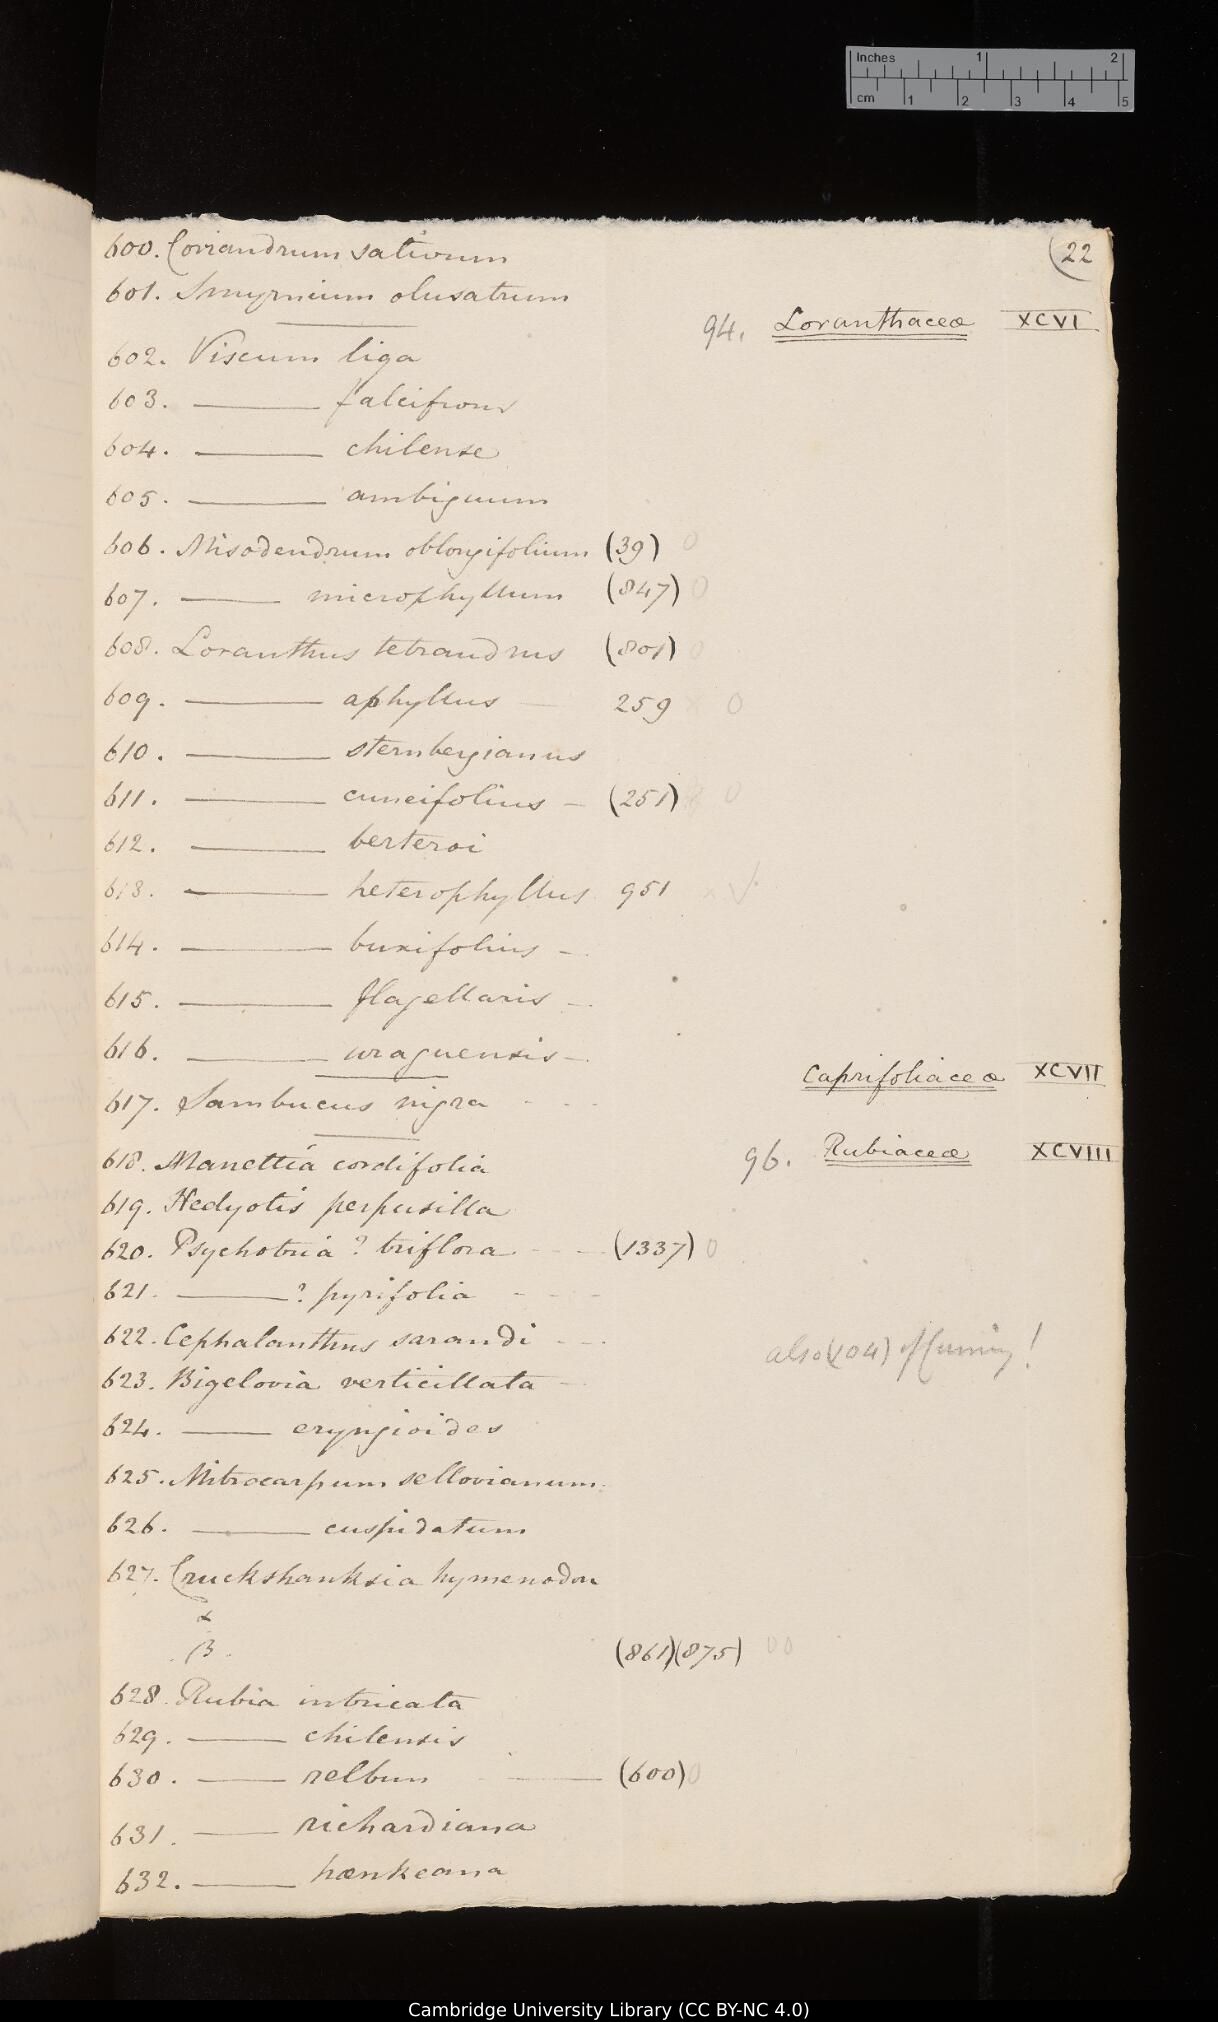 Inches 1 2
cm 1 2 3 4 5
22
600. Coriandrum sativum
601. Smyrnium olusatrum
94. Loranthaceæ XCVI
602. Viscum liga
603. ——— falcifrons
604. ——— chilense
605. ——— ambiguum
606. Misodendrum oblongifolium (39) 0
607. ——— microphyllum (847) 0
608. Loranthus tetrandrus (801) 0
609. ——— aphyllus — 259 x 0
610. ——— sternbergianus
611. ——— cuneifolius – (251) 0
612. ——— berteroi
613. ——— heterophyllus 951 x √
614. ——— buxifolius –
615. ——— flagellaris –
616. ——— uraguensis –
Caprifoliaceæ XCVII
617. Sambucus nigra - - -
96. Rubiaceæ XCVIII
618. Manettia cordifolia
619. Hedyotis perpusilla
620. Psychotria? triflora - - - (1337) 0
621. ———? pyrifolia - - -
622. Cephalanthus sarandi - - -
also (104) of Cuming!
623. Bigelovia verticillata -
624. ——— eryngioides
625. Mitrocarpum sellovianum.
626. ——— cuspidatum
627. Cruckshanksia hymenodon
α
β. (861) (875) 00
628. Rubia intricata
629. ——— chilensis
630. ——— relbun - —— (600) 0
631. ——— richardiana
632. ——— hænkeana
Cambridge University Library (CC BY-NC 4.0)